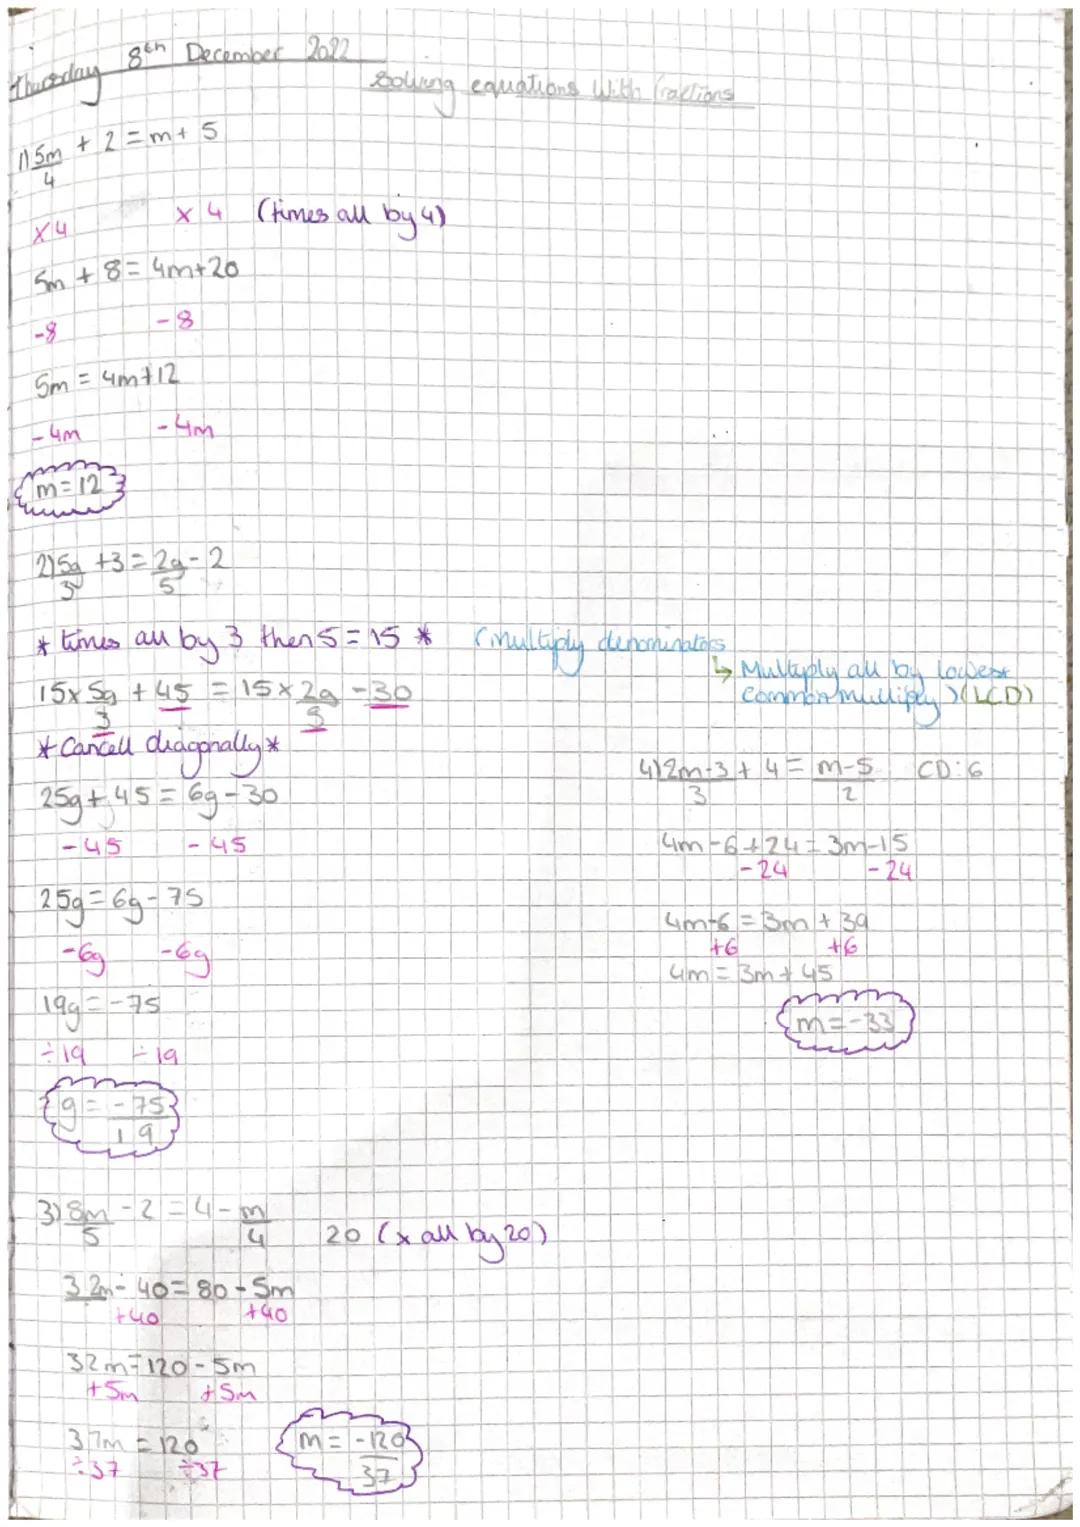 Thursday 8th December 2022
Solving equations with fractions
1) 5m/4 + 2 = m + 5
×4 ×4 (times all by 4)
5m + 8 = 4m + 20
-8 -8
5m = 4m + 12
-4m -4m
m = 12
2) 5g/3 + 3 = 2g/5 - 2
* times all by 3 then 5 = 15 * (multiply denominators
↳ Multiply all by lowest
common multiply) (LCD)
15 × 5g/3 + 45 = 15 × 2g/5 - 30
* Cancell diagonally *
25g + 45 = 6g - 30
-45 -45
25g = 6g - 75
-6g -6g
19g = -75
÷19 ÷19
g = -75/19
3) 8m/5 - 2 = 4 - m/4 20 (× all by 20)
32m - 40 = 80 - 5m
+40 +40
32m = 120 - 5m
+5m +5m
37m = 120
÷37 ÷37
m = -120/37
4) 2m-3/3 + 4 = m-5/2 CD: 6
4m - 6 + 24 = 3m - 15
-24 -24
4m - 6 = 3m + 39
+6 +6
4m = 3m + 45
m = -33